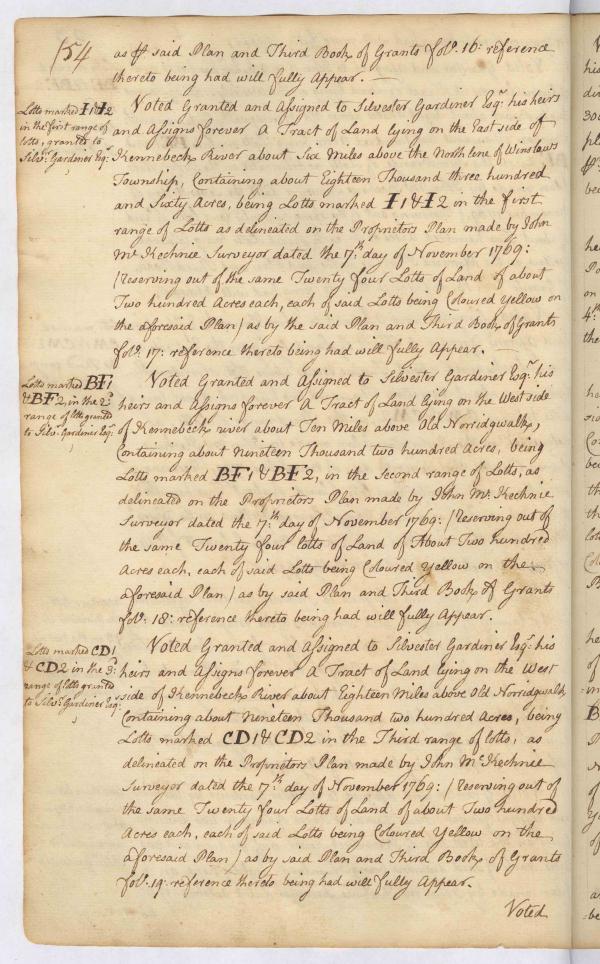 154
as ꝑ said Plan and Third Book of Grants folo. 16: reference
thereto being had will fully Appear. —
Lotts marked I1 & I2
in the first range of
lotts, granted to
Silvr. Gardiner Esqr.
Voted Granted and Assigned to Silvester Gardiner Esqr. his heirs
and Assigns forever A Tract of Land lying on the East side of
Kennebeck River about Six Miles above the North line of Winslows
Township, Containing about Eighteen Thousand three hundred
and Sixty Acres, being Lotts marked I1 & I2 in the first
range of Lotts as delineated on the Proprietors Plan made by John
Mc. Kechnie Surveyor dated the 17th. day of November 1769:
/Reserving out of the same Twenty four Lotts of Land of about
Two hundred Acres each, each of said Lotts being Coloured Yellow on
the aforesaid Plan/ as by the said Plan and Third Book of Grants
folo. 17: reference thereto being had will fully Appear. —
Lotts marked BF1
& BF2, in the 2d.
range of lotts granted
to Silvr. Gardiner Esqr.
Voted Granted and Assigned to Silvester Gardiner Esqr. his
heirs and Assigns forever A Tract of Land lying on the West side
of Kennebeck river about Ten Miles above Old Norridgwalk,
Containing about Nineteen Thousand two hundred Acres, being
Lotts marked BF1 & BF2, in the Second range of Lotts, as
delineated on the Proprietors Plan made by John Mc. Kechnie
Surveyor dated the 17th. day of November 1769: /Reserving out of
the same Twenty four lotts of Land of About Two hundred
Acres each, each of said Lotts being Coloured Yellow on the
aforesaid Plan/ as by said Plan and Third Book of Grants
folo. 18: reference thereto being had will fully Appear.
Lotts marked CD1
& CD2 in the 3d.
range of lotts granted
to Silvr. Gardiner Esqr.
Voted Granted and Assigned to Silvester Gardiner Esqr. his
heirs and Assigns forever A Tract of Land lying on the West
side of Kennebeck River about Eighteen Miles above Old Norridgwalk,
Containing about Nineteen Thousand two hundred Acres, being
Lotts marked CD1 & CD2 in the Third range of lotts, as
delineated on the Proprietors Plan made by John Mc. Kechnie
Surveyor dated the 17th. day of November 1769: /Reserving out of
the same Twenty four Lotts of Land of about Two hundred
Acres each, each of said Lotts being Coloured Yellow on the
aforesaid Plan/ as by said Plan and Third Book of Grants
folo. 19: reference thereto being had will fully Appear.
Voted